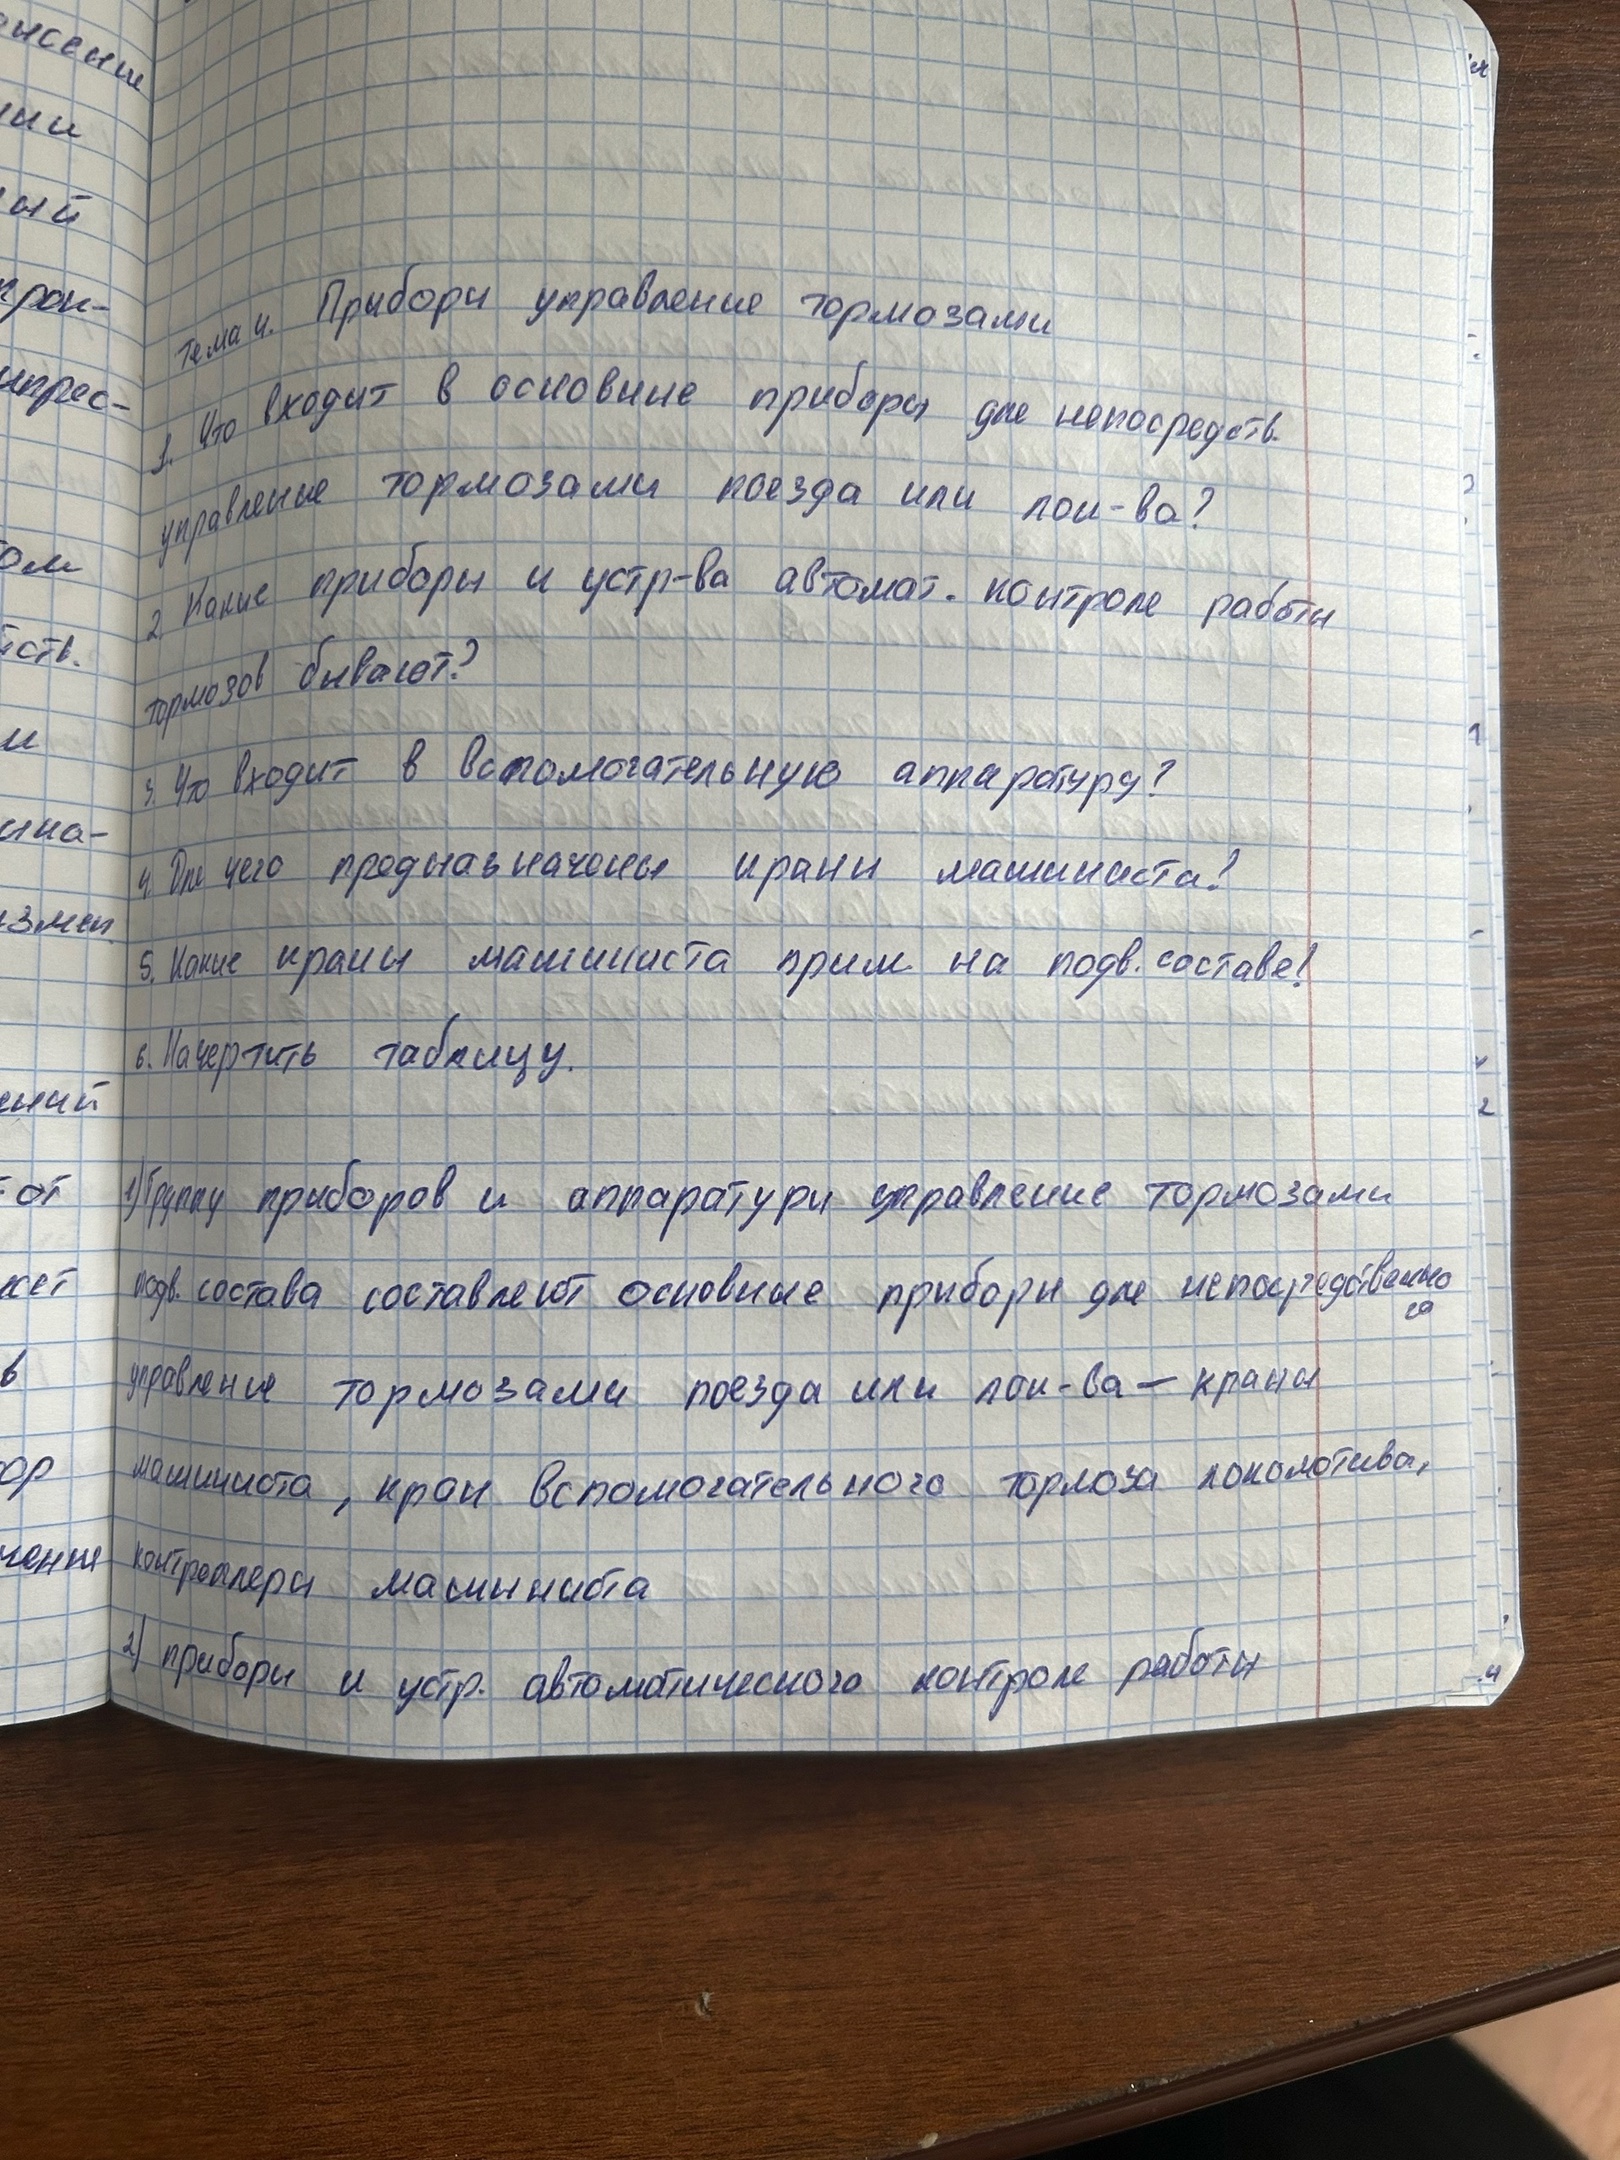 Тема 4. Приборы управление тормозами
1. Что входит в основные приборы для непосредств.
управление тормозами поезда или лок-ва?
2. Какие приборы и устр-ва автомат. контроля работы
тормозов бывают?
3. Что входит в вспомогательную аппаратуру?
4. Для чего предназначены краны машиниста?
5. Какие краны машиниста прим. на подв. составе?
6. Начертить таблицу.
1) Группу приборов и аппаратуры управление тормозами
подв. состава составляют основные приборы для непосредственно
го
управление тормозами поезда или лок-ва – краны
машиниста, кран вспомогательного тормоза локомотива,
контроллеры машиниста
2) приборы и устр. автоматического контроля работы